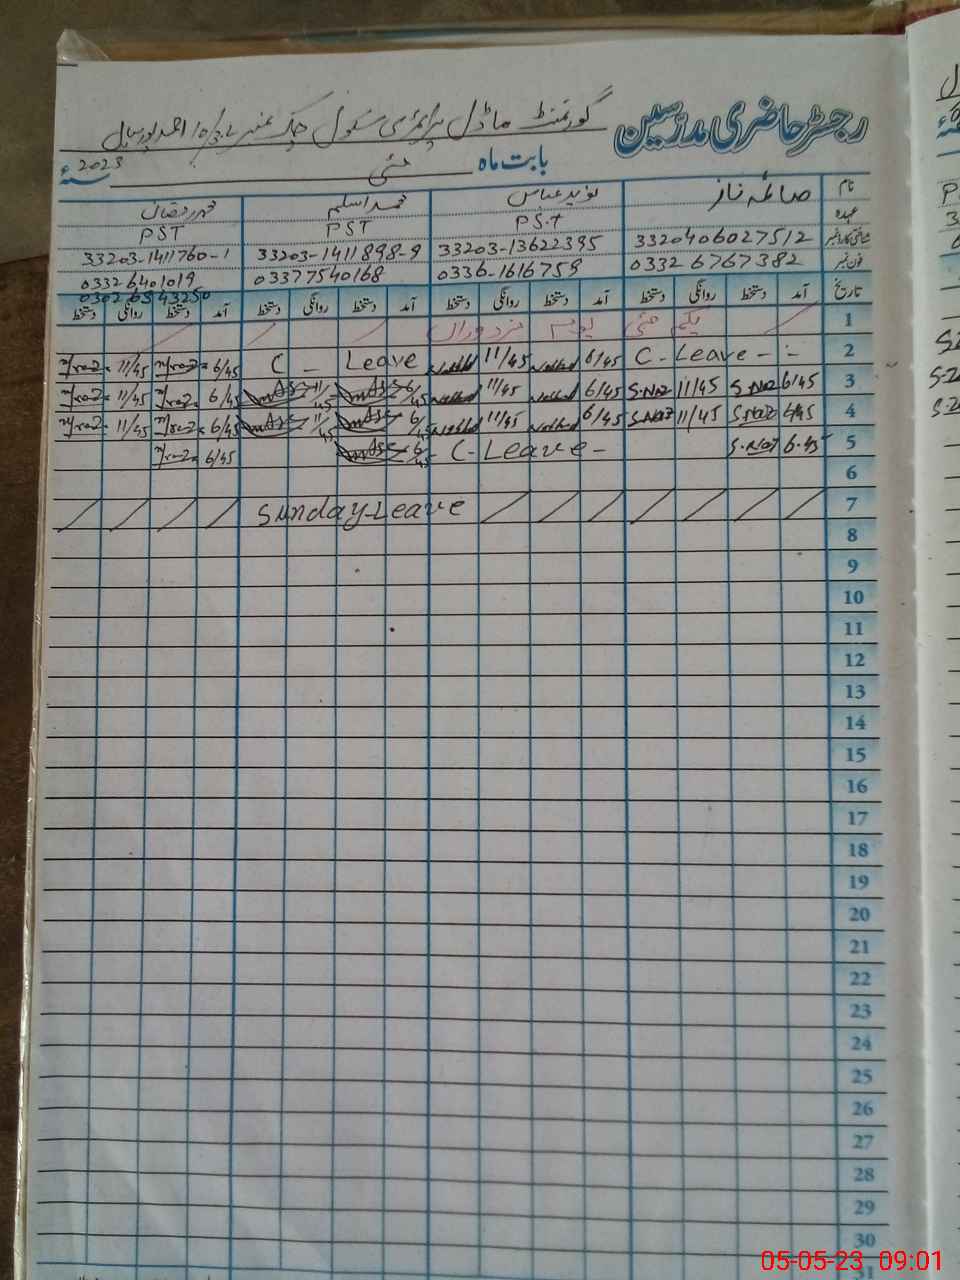 رجسٹر حاضری مدرسین گورنمنٹ ماڈل پرائمری سکول چک نمبر احمد پور سیال
بابت ماہ مئی 2023 سنہ
نام صائمہ ناز نوید عباس محمد اسلم محمد رمضان
عہدہ PST PST PST
شناختی کارڈ نمبر 3320406027512 33203-13622395 33203-1411898-9 33203-1411760-1
فون نمبر 0332 6767382 0336-1616759 03377540168 03326401019
03026543250
تاریخ آمد دستخط روانگی دستخط آمد دستخط روانگی دستخط آمد دستخط روانگی دستخط آمد دستخط روانگی دستخط
1 یکم مئی یوم مزدوراں
2 C-Leave-:- 6/45 11/45 C - Leave 6/45 11/45
3 6/45 S.Naz 11/45 S.Naz 6/45 11/45 6/45 11/45 6/45 11/45
4 6/45 S.Naz 11/45 S.Naz 6/45 11/45 6/45 11/45 6/45 11/45
5 6-45 S.Naz - C-Leave - 6/45 6/45
6
7 Sunday-Leave
8
9
10
11
12
13
14
15
16
17
18
19
20
21
22
23
24
25
26
27
28
29
30
31
05-05-23 09:01